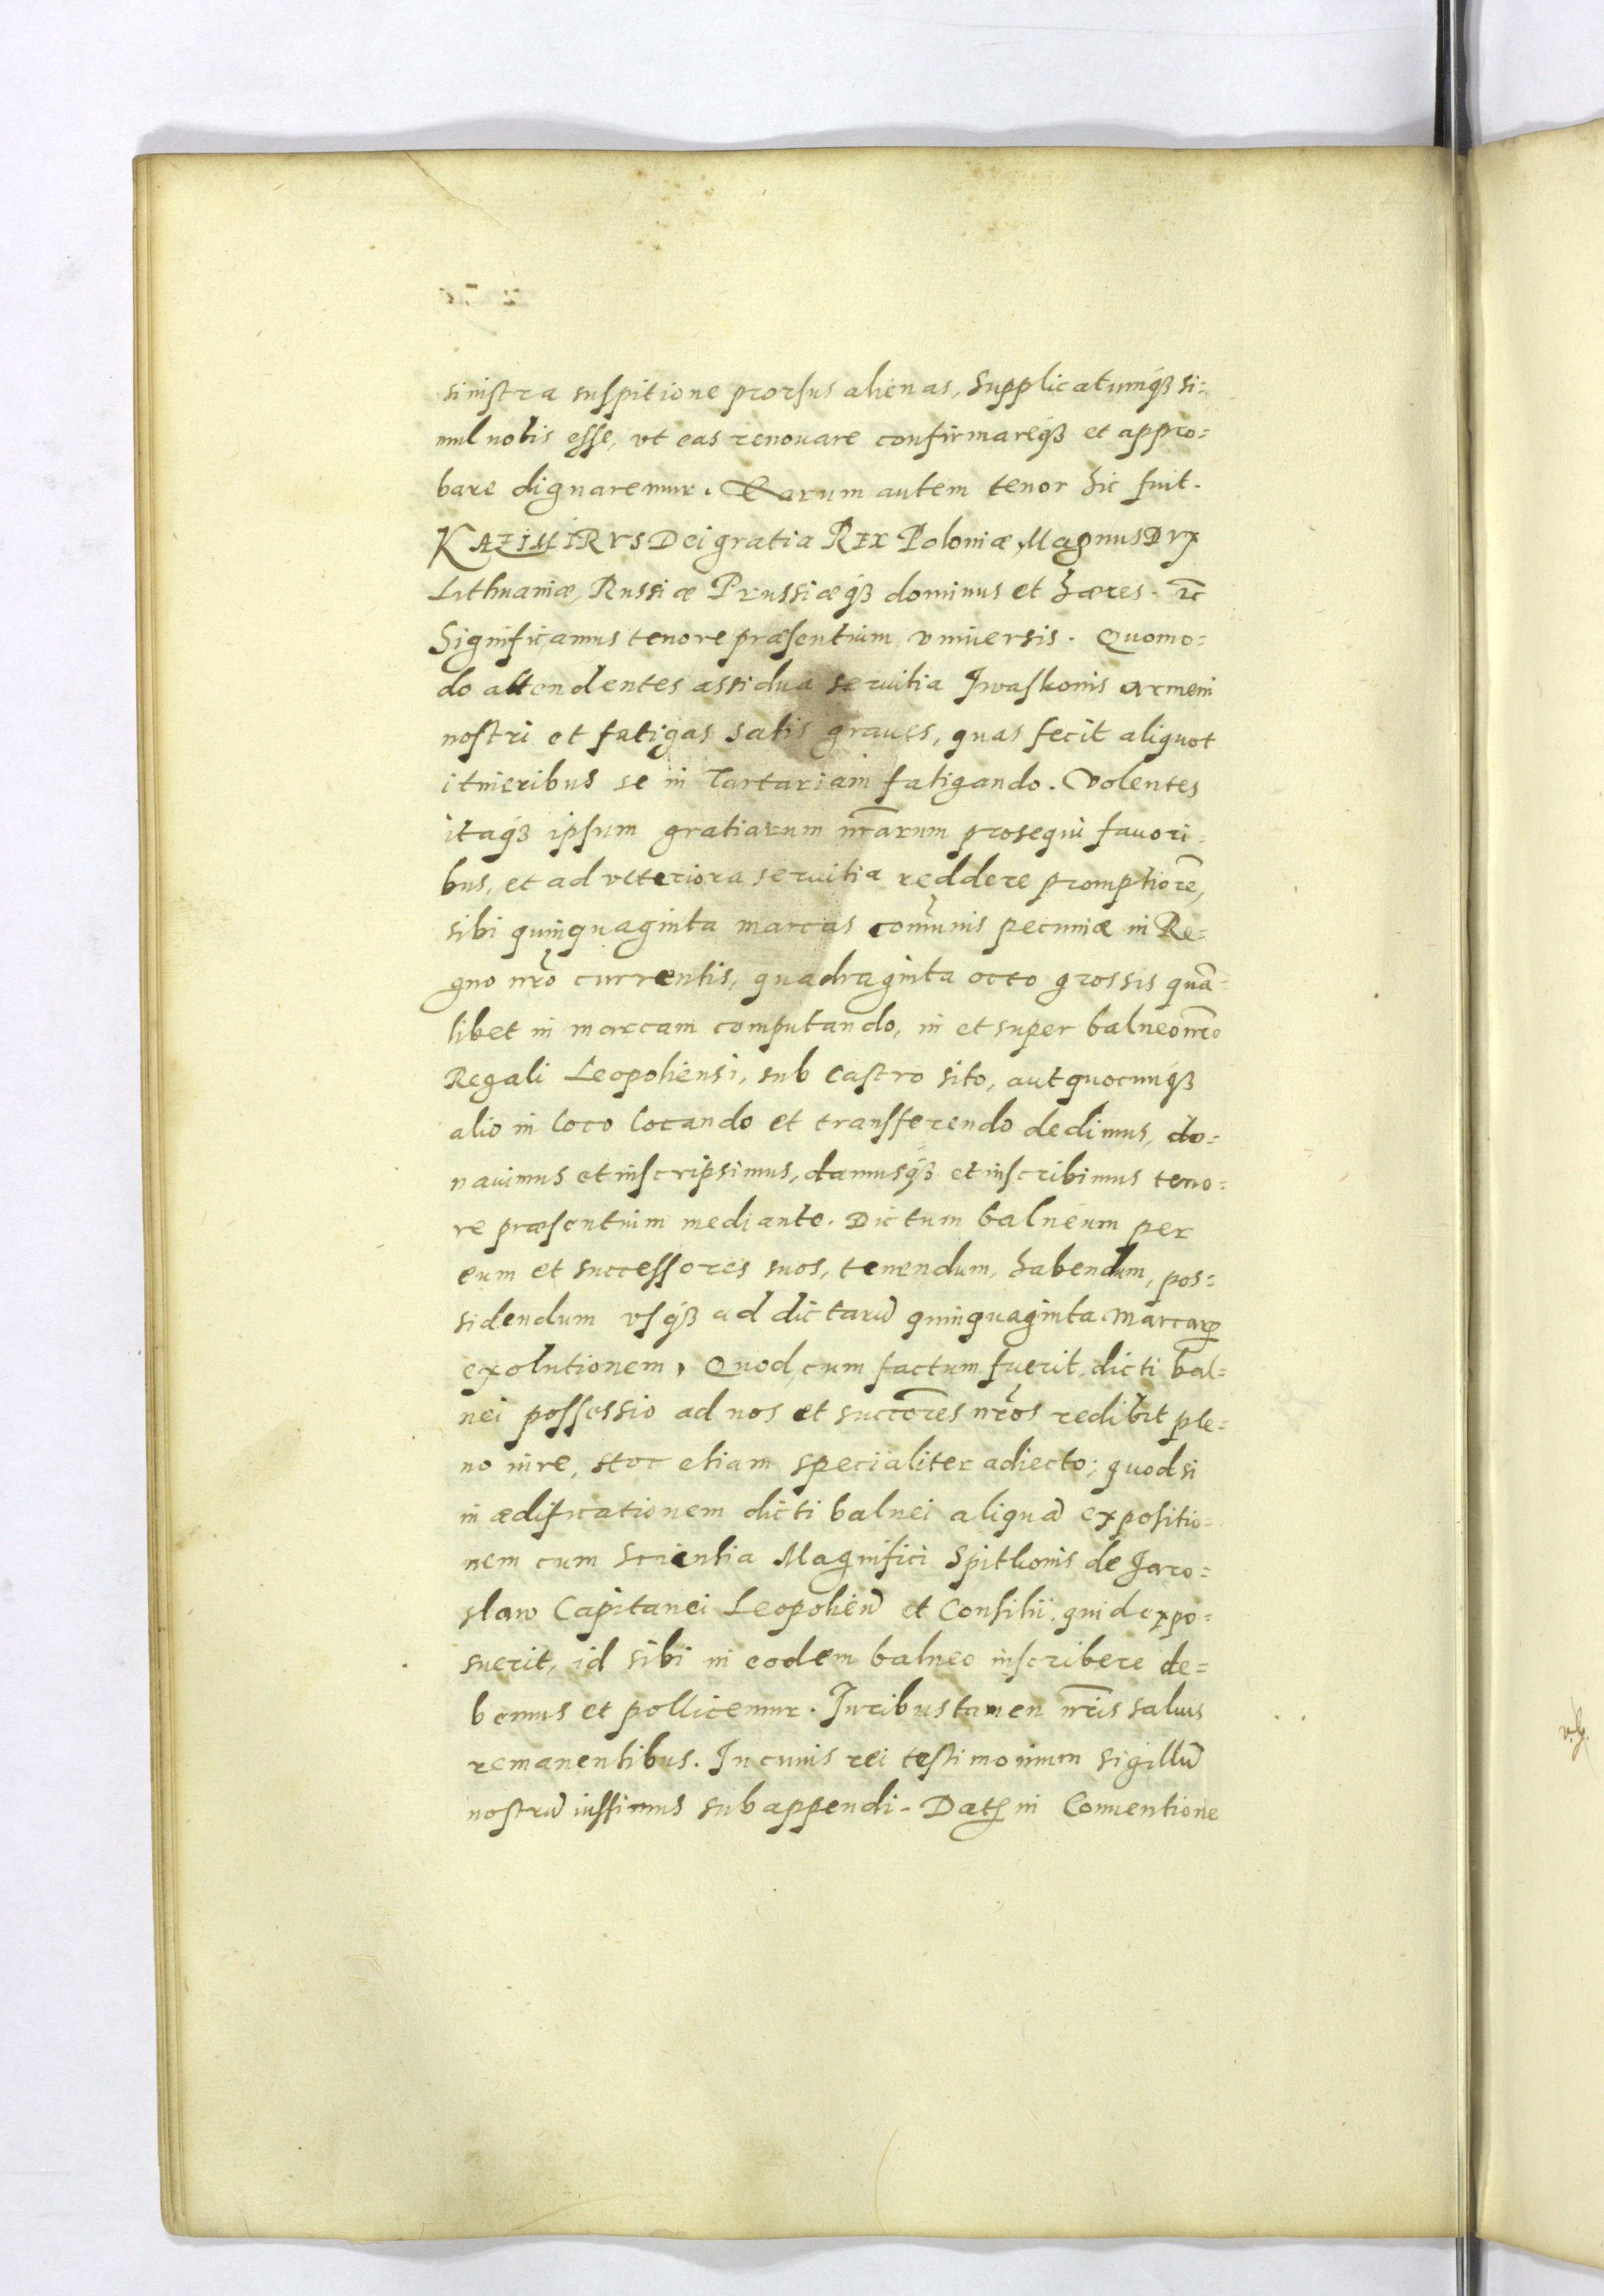 sinistra suspitione prorsus alienas, Supplicatumq3 si=
mul nobis esse, vt eas renouare confirmareq3 et appro=
bare dignaremur. Earum autem tenor hic fuit.
KAZIMIRVS Dei gratia REX Poloniæ, Magnus DVX
Lithuaniæ, Russiæ Prussiæq3 dominus et hæres. etc
Significamus tenore præsentium vniuersis. Quomo=
do attendentes assidua seruitia Iwaskonis armeni
nostri et fatigas satis graues, quas fecit aliquot
itineribus se in Tartariam fatigando. Volentes
itaq3 ipsum gratiarum nr̃arum prosequi fauori=
bus, et ad vlteriora seruitia reddere promptiorẽ,
sibi quinquaginta marcas com̃unis pecuniæ in Re=
gno nr̃o currentis, quadraginta octo grossis quã=
libet in marcam computando, in et super balneo nr̃o
Regali Leopoliensi, sub castro sito, aut quocunq3
alio in loco locando et transferendo dedimus, do=
nauimus et inscripsimus, damusq3 et inscribimus teno=
re præsentium mediante. Dictum balneum per
eum et successores suos, tenendum, habendum, pos=
sidendum vsq3 ad dictarũ quinquaginta marcarꝝ
exolutionem, Quod, cum factum fuerit, dicti bal=
nei possessio ad nos et succõres nr̃os redibit ple=
no iure, Hoc etiam specialiter adiecto; quod si
in ædificationem dicti balnei aliquã expositio=
nem cum scientia Magnifici Spitkonis de Jaro=
slaw Capitanei Leopolieñ et Consilii quid expo=
suerit, id sibi in eodem balneo inscribere de=
bemus et pollicemur. Iuribus tamen nr̃is saluis
remanentibus. In cuius rei testimonium sigillũ
nostrũ iussimus subappendi. Datꝭ in Conuentione